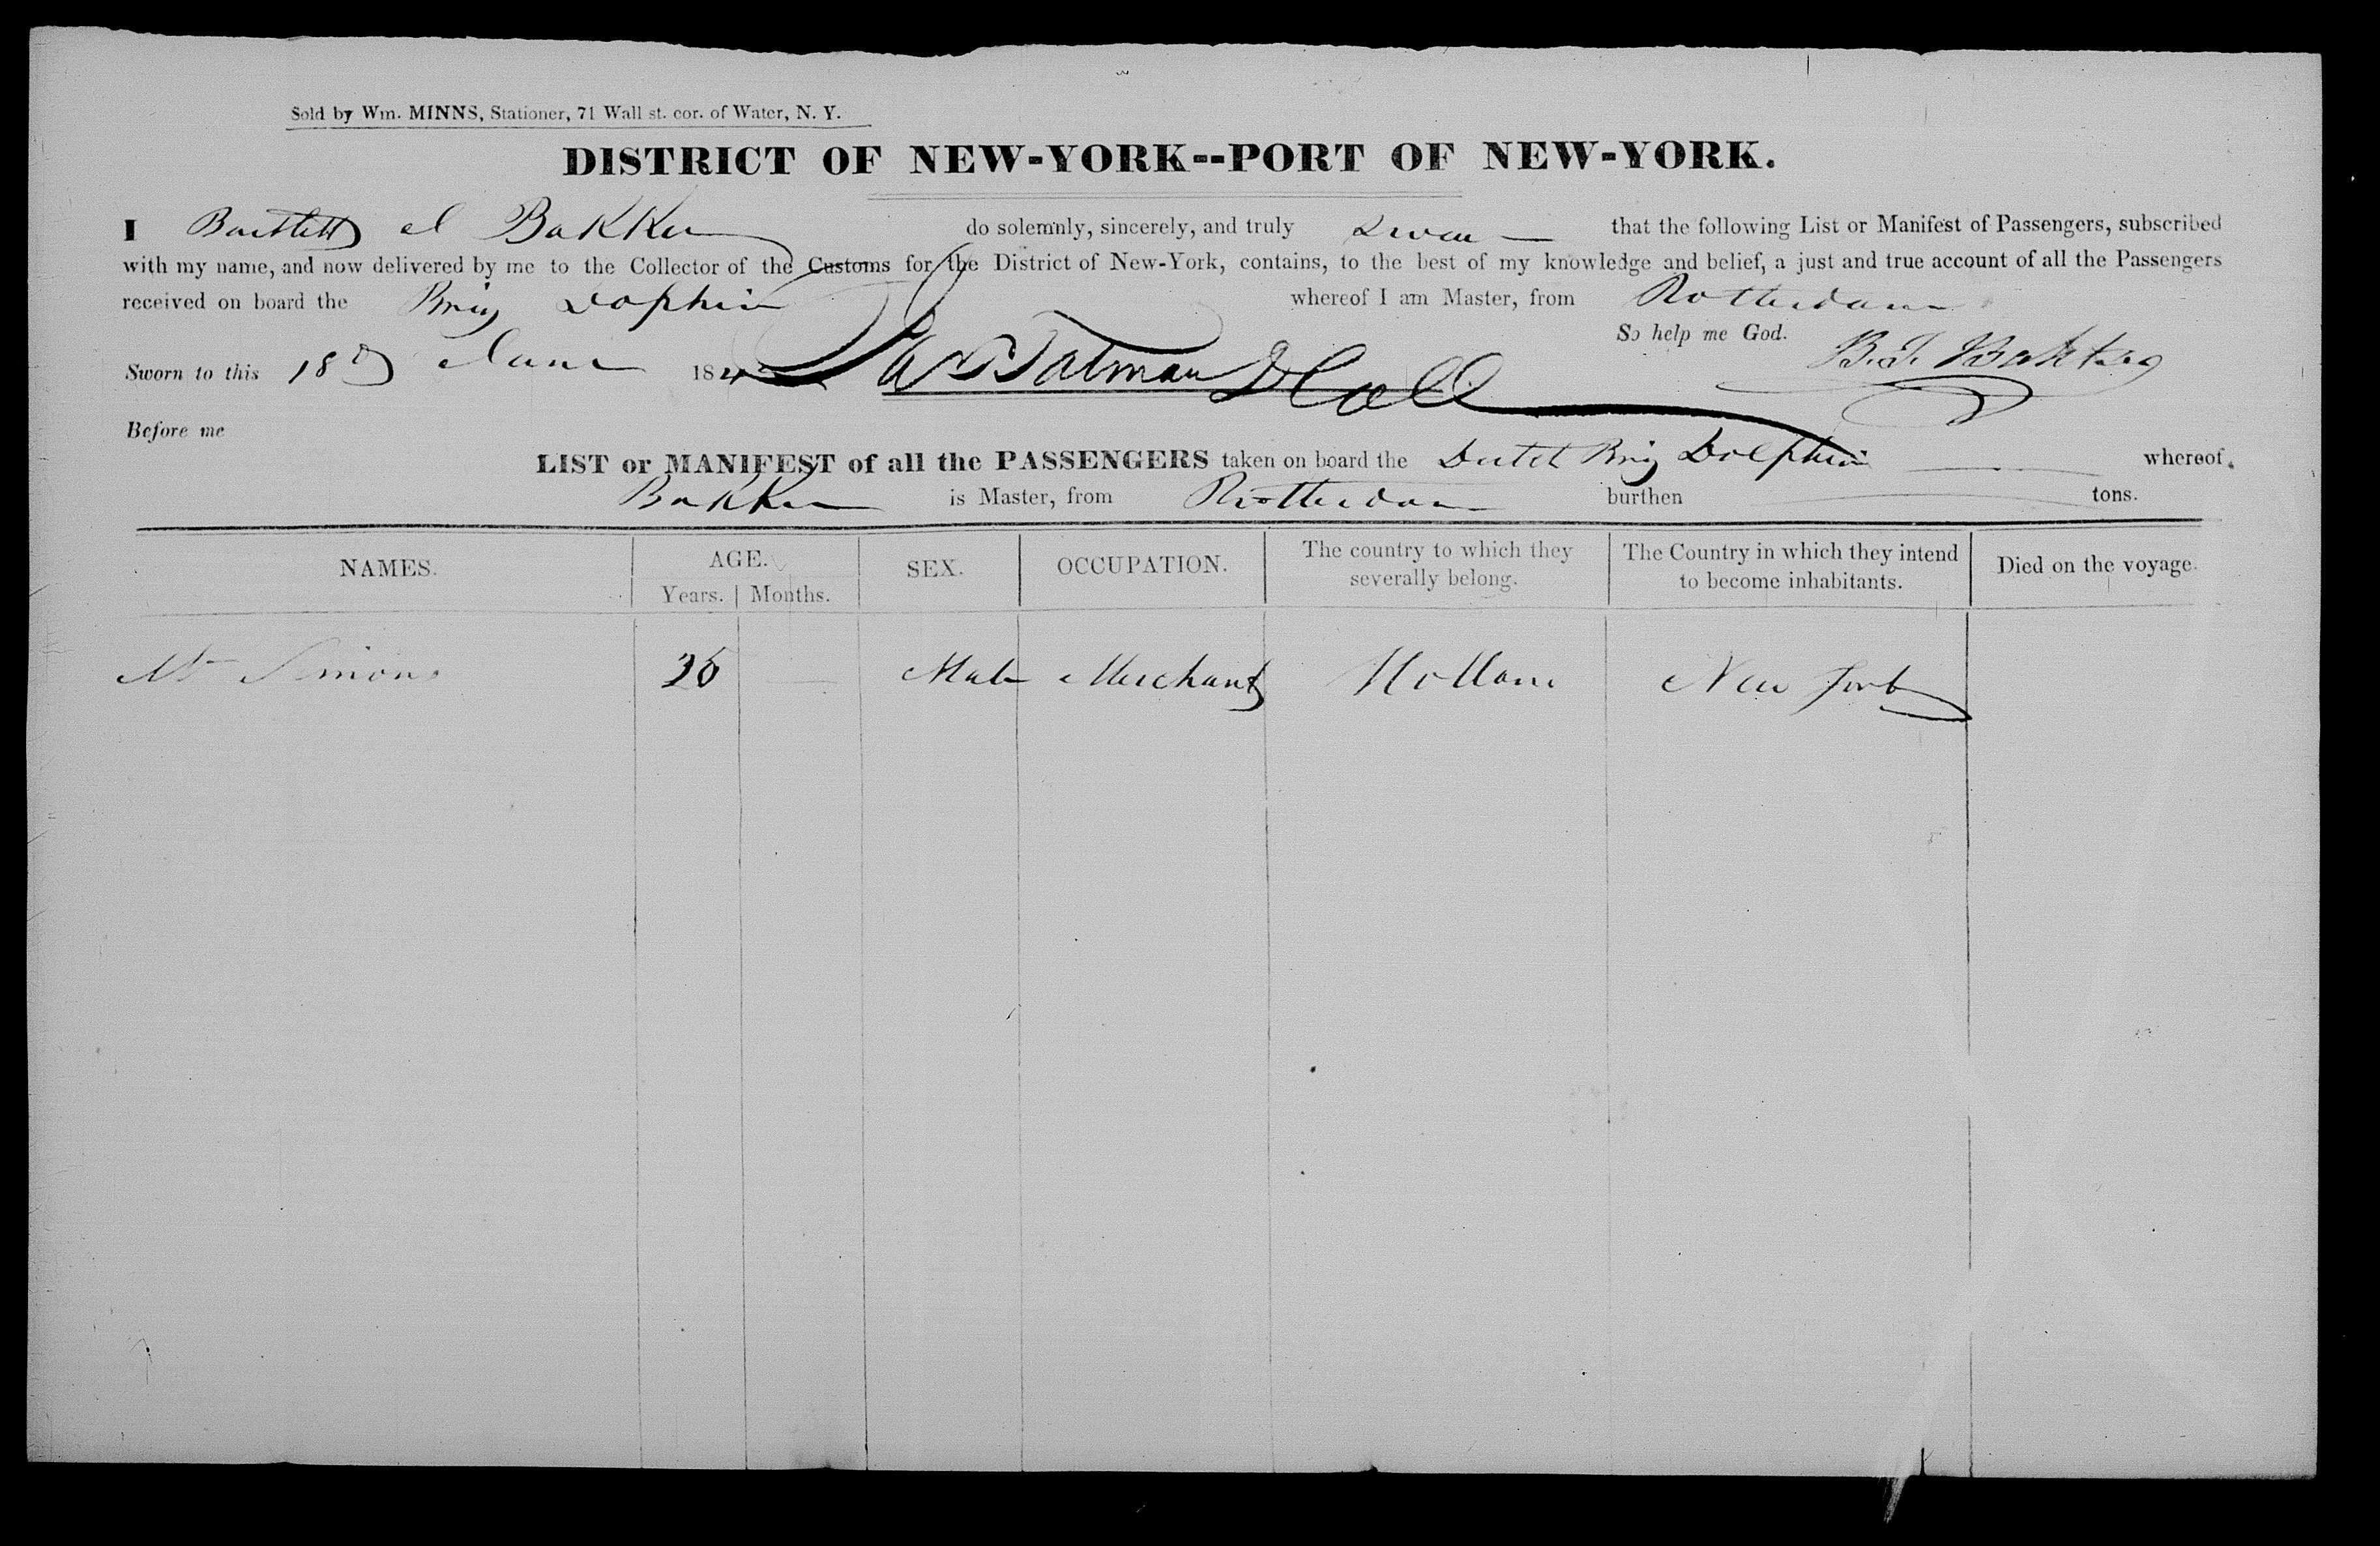 Sold by Wm. MINNS, Stationer, 71 Wall st. cor. of Water, N. Y.
DISTRICT OF NEW-YORK--PORT OF NEW-YORK.
I Bartlett J Bakker do solemnly, sincerely, and truly swear that the following List or Manifest of Passengers, subscribed
with my name, and now delivered by me to the Collector of the Customs for the District of New-York, contains, to the best of my knowledge and belief, a just and true account of all the Passengers
received on board the Brig Dophin whereof I am Master, from Rotterdam
So help me God.
Sworn to this 18th June 184 Tatman D Coll B. J. Bakker
Before me
LIST or MANIFEST of all the PASSENGERS taken on board the Dutch Brig Dolphin whereof
Bakker is Master, from Rotterdam burthen tons.
NAMES. AGE. Years. Months. SEX. OCCUPATION. The country to which they severally belong. The Country in which they intend to become inhabitants. Died on the voyage.
Mr Simons 36 — Male Merchant Holland New York